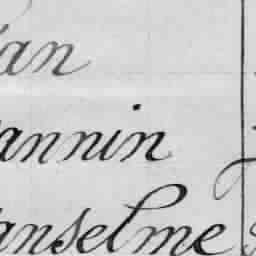 an
annin
anselme